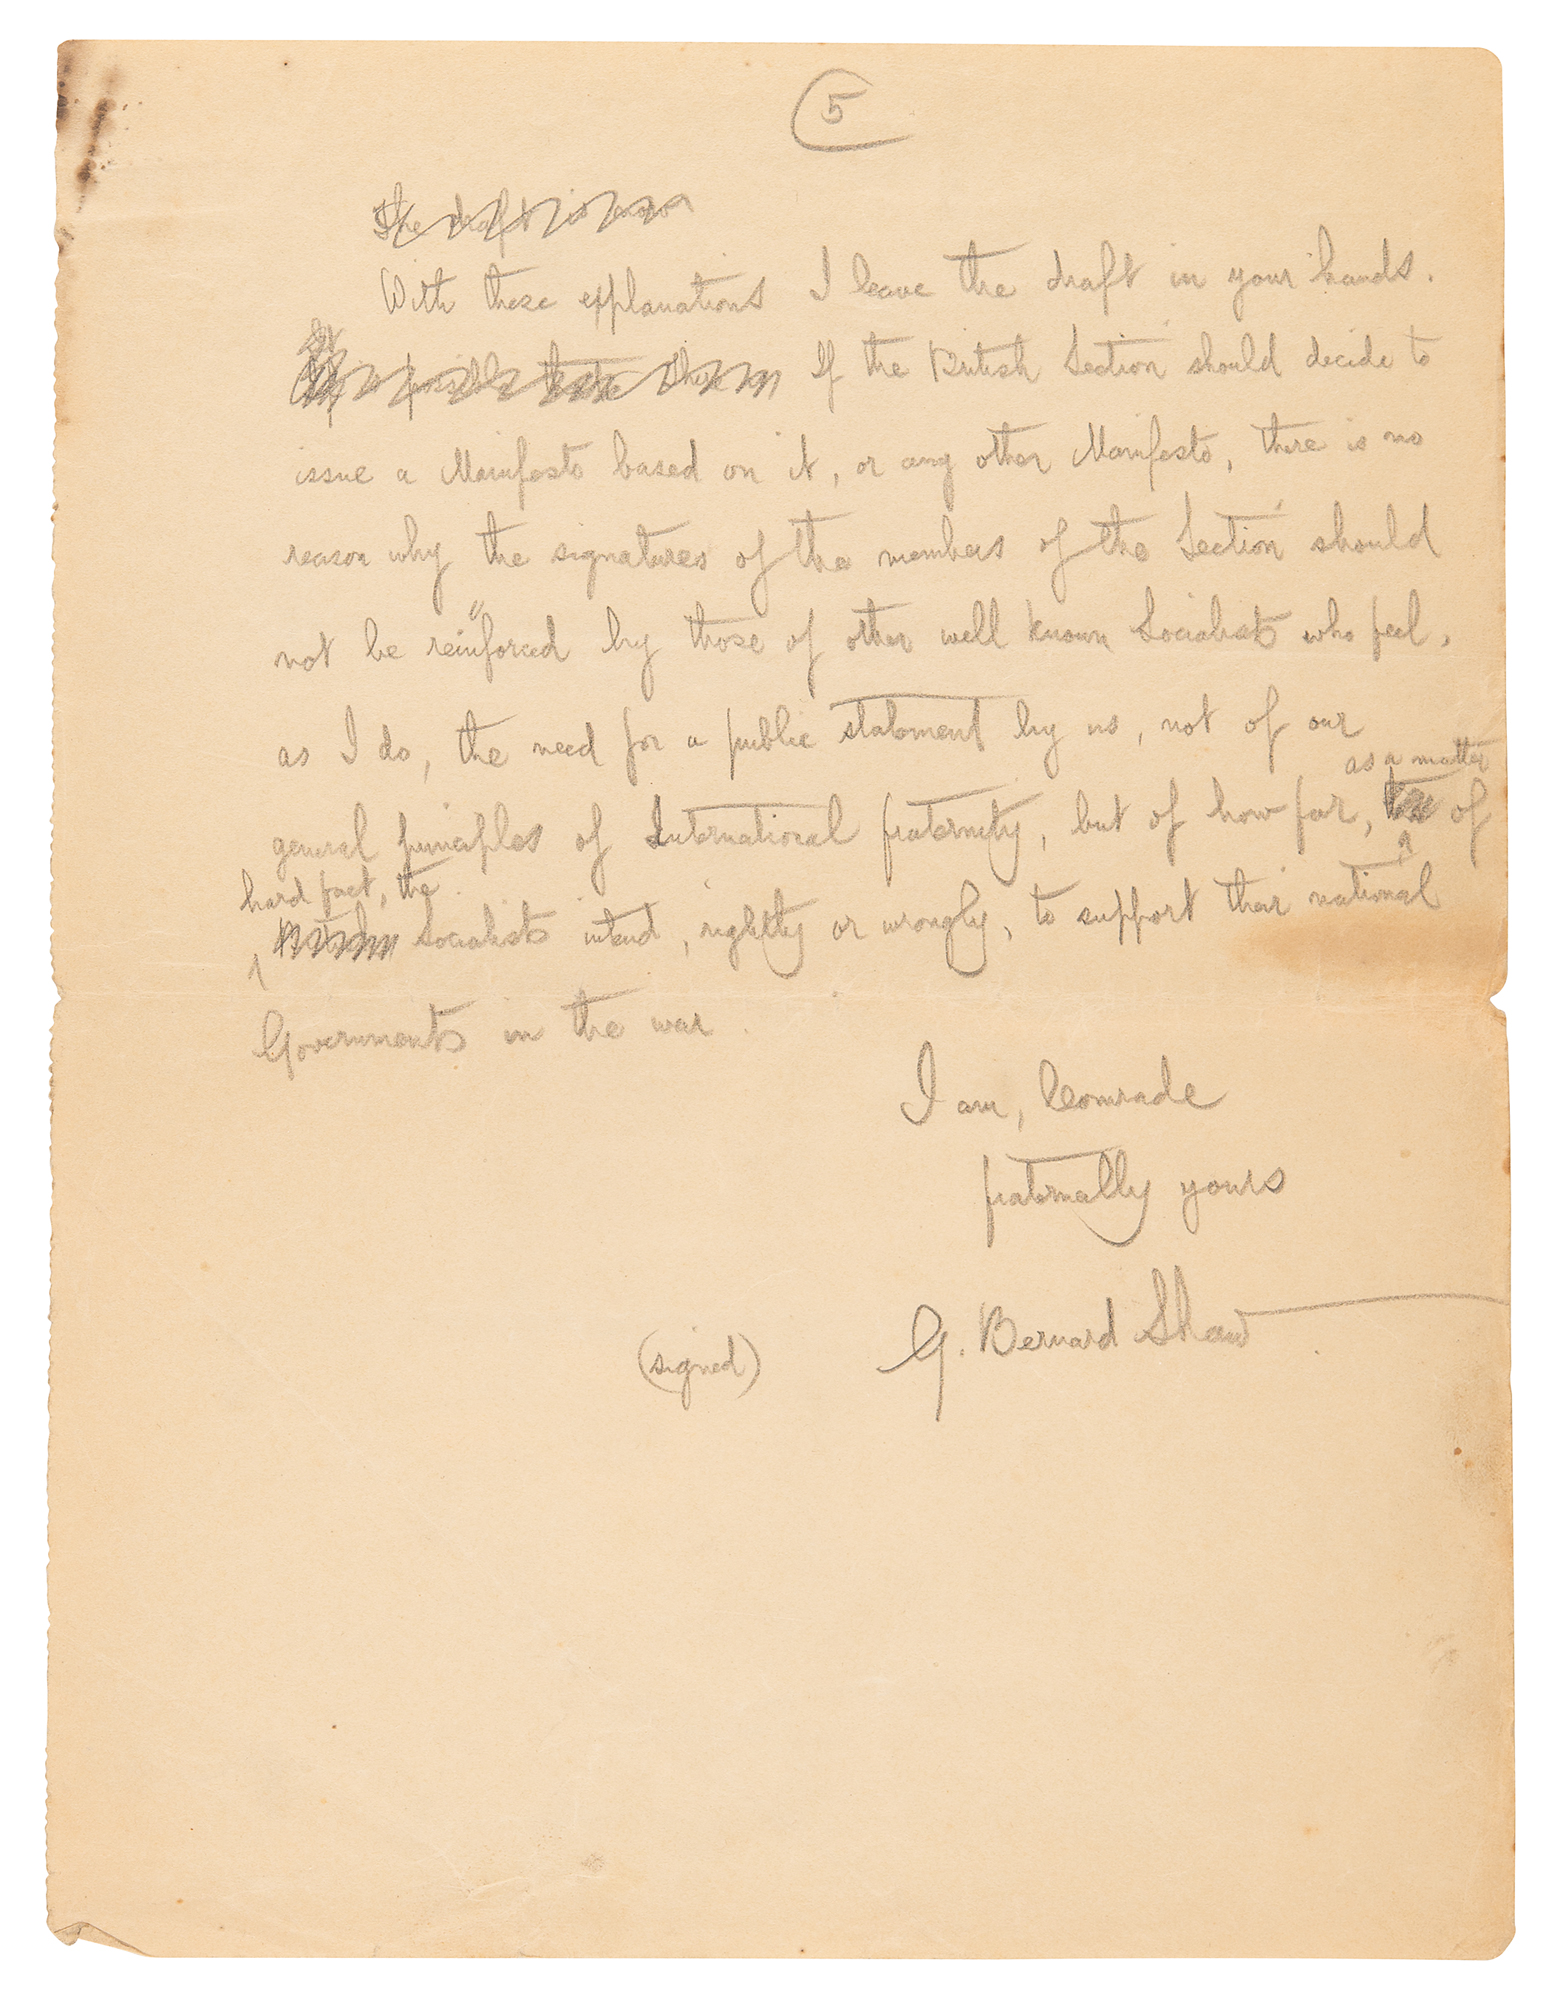 5
The draft is
With these explanations I leave the draft in your hands.
If the British Section should decide to
issue a Manifesto based on it, or any other Manifesto, there is no
reason why the signatures of the members of the Section should
not be reinforced by those of other well known Socialists who feel,
as I do, the need for a public statement by us, not of our
as a matter
general principles of International fraternity, but of how far, of
hard fact, the
Socialists intend, rightly or wrongly, to support their national
Governments in the war.
I am, Comrade
fraternally yours
(signed) G. Bernard Shaw